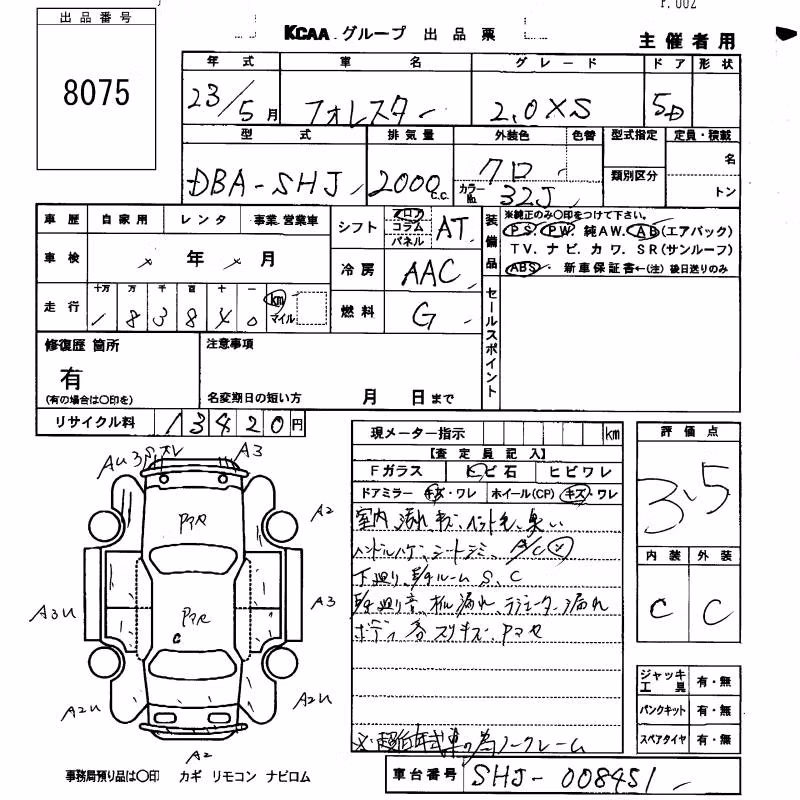 出品番号
8075
KCAA グループ 出品票
主催者用
年式 車名 グレード ドア 形状
23/5月 フォレスター 2.0XS 5D
型式 排気量 外装色 色替 型式指定 定員・積載
DBA-SHJ 2000c.c. クロ カラーNo. 32J 類別区分 名 トン
車歴 自家用 レンタ 事業 営業車
シフト フロア コラム パネル AT
装備品 ※純正のみ〇印をつけて下さい。
PS. PW. 純AW. AB(エアバック)
TV. ナビ. カワ. SR(サンルーフ)
ABS. 新車保証書←(注)後日送りのみ
車検 年 月
冷房 AAC
走行 十万 万 千 百 十 一 km マイル
183840
燃料 G
セールスポイント
修復歴 箇所
有
(有の場合は〇印を)
注意事項
名変期日の短い方 月 日まで
リサイクル料 13420円
現メーター指示 km
評価点
3.5
【査定員記入】
Fガラス トビ石 ヒビワレ
ドアミラー キズ・ワレ ホイール(CP) キズ・ワレ
室内 汚れ キズ ペット毛 臭い
ハンドルハゲ シートシミ A/C
下廻り S.C
オイル漏れ ラジエーター漏れ
ボディ 各スリキズ アマセ
※ 超低年式車の為ノークレーム
内装 外装
C C
ジャッキ 工具 有・無
パンクキット 有・無
スペアタイヤ 有・無
AU3 A3
A2
A3U A3
A2U A2U
A2
C
事務局預り品は〇印 カギ リモコン ナビロム
車台番号 SHJ-008451